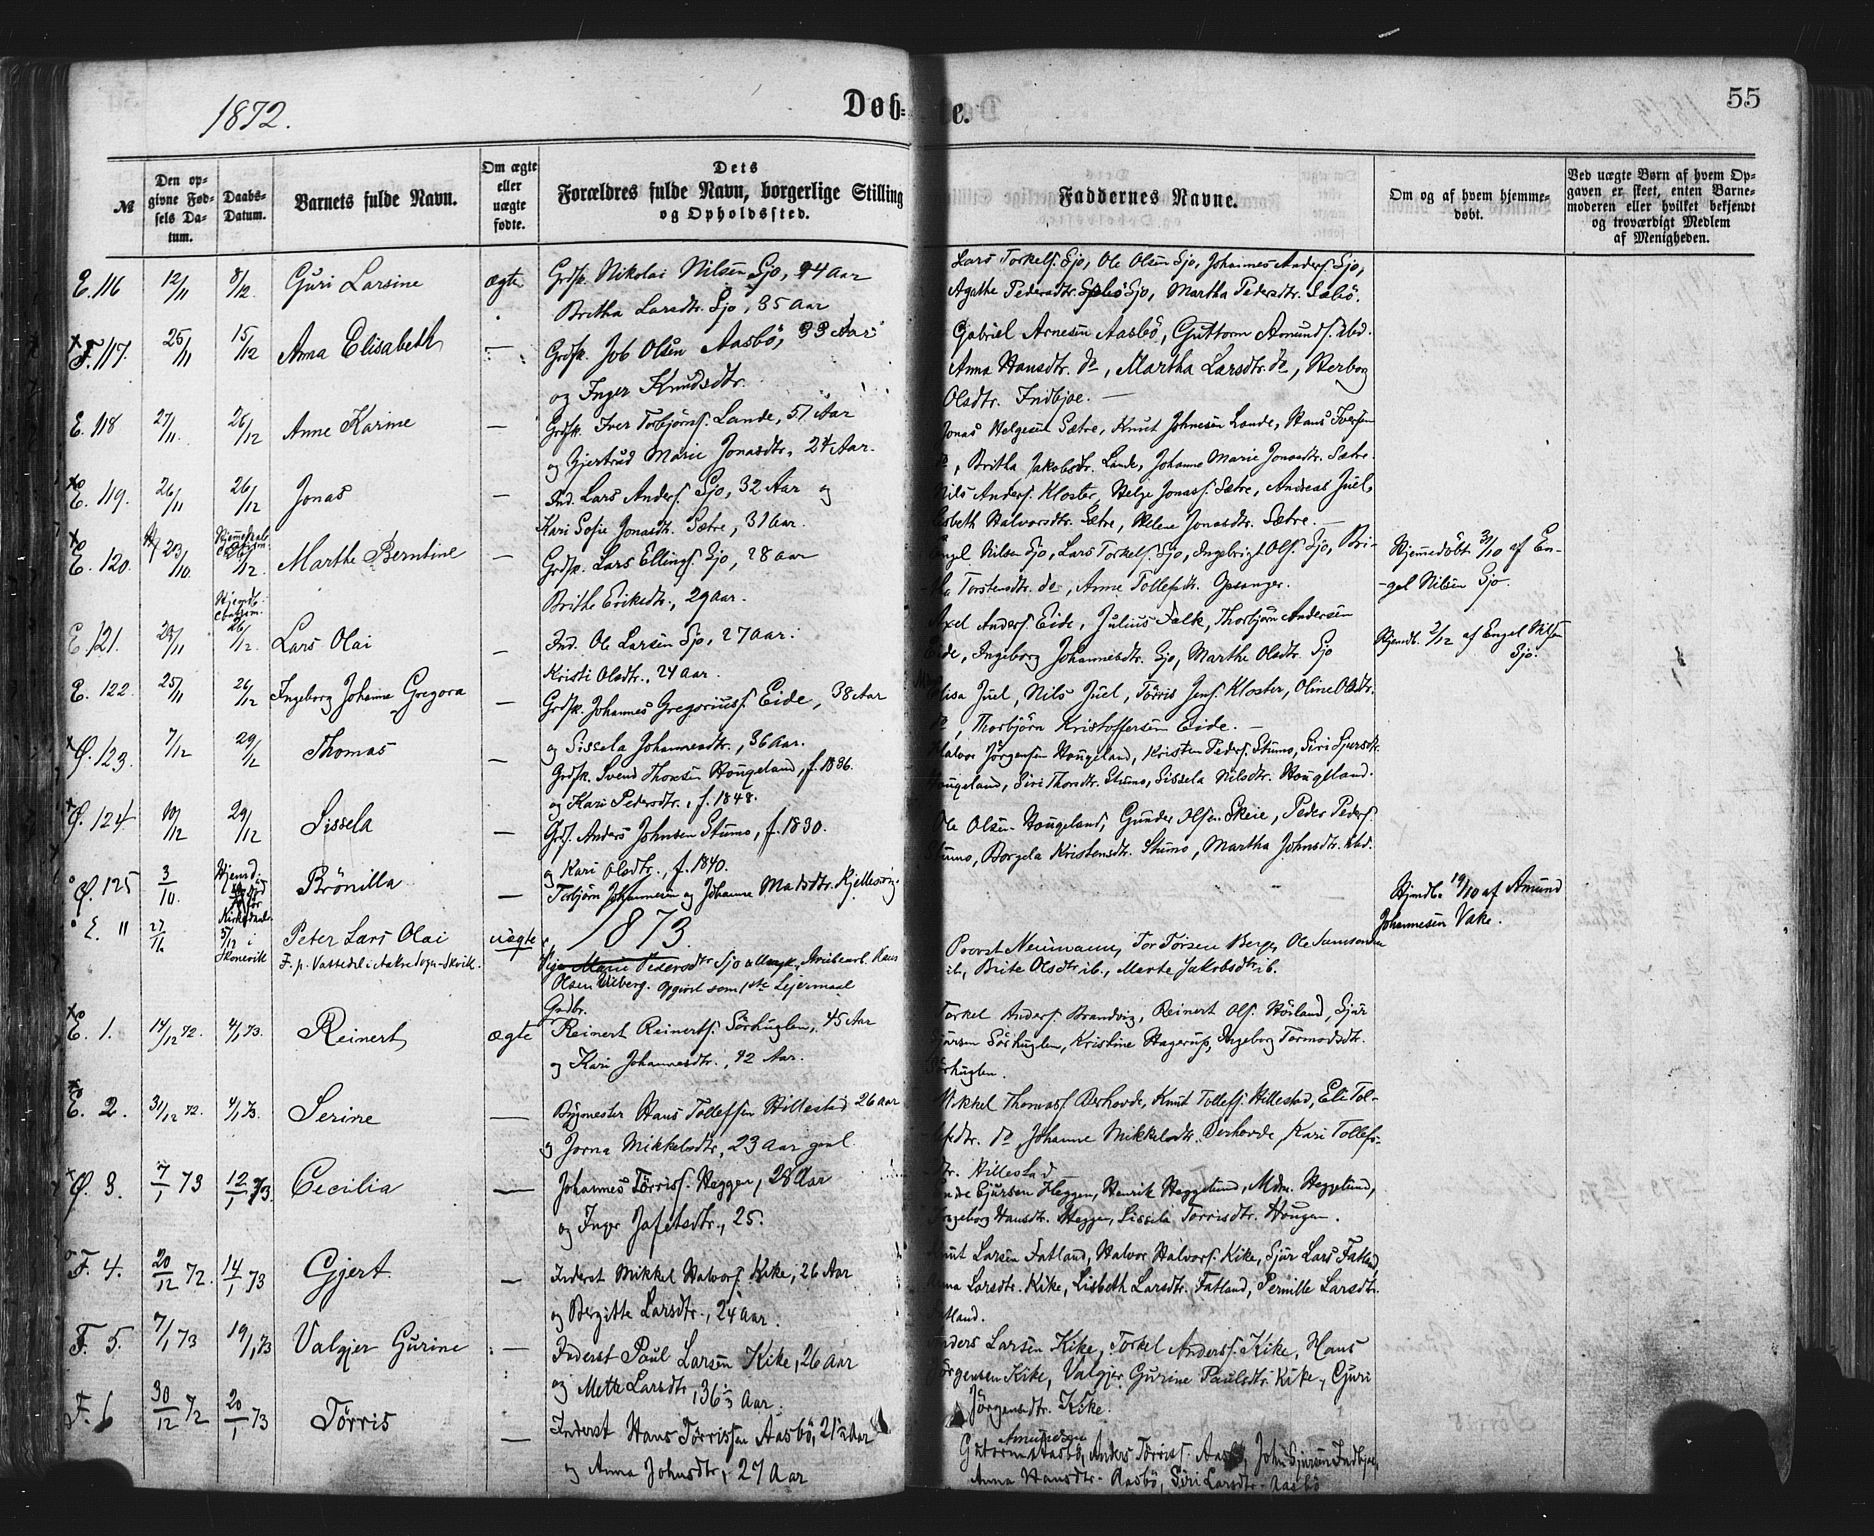 1872.
Døb-
te.
55
№
Den op-
givne Fød-
sels Da-
tum.
Daabs-
Datum.
Barnets fulde Navn.
Om ægte
eller
uægte
fødte.
Dets
Forældres fulde Navn, borgerlige Stilling
og Opholdssted.
Faddernes Navne.
Om og af hvem hjemme-
døbt.
Ved uægte Børn af hvem Op-
gaven er skeet, enten Barne-
moderen eller hvilket bekjendt
og troværdigt Medlem
af Menigheden.
E. 116 12/11 8/12 Guri Larsine ægte Grdsk. Nikolai Nilsen Sjo, 44 Aar
Britha Larsdtr. Sjo, 35 Aar
Lars Torkels. Sjo, Ole Olsen Sjo, Johannes Anders. Sjo,
Agathe Pedersdtr. Sjo, Martha Pedersdtr. Sæbö.
F. 117. 25/11 15/12 Anna Elisabeth — Grdsk. Job Olsen Aasbö, 33 Aar
og Inger Knudsdtr.
Gabriel Arnesen Aasbö, Guttorm Amunds. ibd.
Anna Hansdtr. do, Martha Larsdtr. do, Herborg
Olsdtr. Indbjoe. —
E. 118 27/11. 26/12 Anne Karine — Grdsk. Iver Torbjörns. Lande, 51 Aar
og Gjertrud Marie Jonasdtr., 24 Aar.
Jonas Helgesen Sætre, Knut Johnesen Lande, Hans Iversen
do, Britha Jakobsdtr. Lande, Johanne Marie Jonasdtr. Sætre.
E. 119. 26/11 26/12 Jonas — Ind. Lars Anders. Sjo, 32 Aar og
Kari Sofie Jonasdtr. Sætre, 31 Aar.
Nils Anders. Kloster, Helge Jonass. Sætre, Andreas Juel,
Lisbeth Halvorsdtr. Sætre, Helene Jonasdtr. Sætre. —
E. 120. 23/10. 26/12. Marthe Berntine — Grdsk. Lars Ellings. Sjo, 28 Aar
Brithe Eriksdtr., 29 Aar.
Engel Nilsen Sjo, Lars Torkels. Sjo, Ingebrigt Ols. Sjo, Bri-
tha Torstensdtr. do, Anne Tollefsdtr. Opsanger.
Hjemmedöbt 31/10 af En-
gel Nilsen Sjo.
E. 121. 29/11 26/12. Lars Olai — Ind. Ole Larsen Sjo, 27 Aar.
Kristi Olsdtr., 24 Aar.
Axel Anders. Eide, Julius Falk, Thorbjörn Andersen
Eide, Ingeborg Johannesdtr. Sjo, Marthe Olsdtr. Sjo
Hjemdb. 2/12 af Engel Nilsen
Sjo.
E. 122. 25/11 26/12 Ingeborg Johanne Gregora — Grdsk. Johannes Gregoriuss. Eide, 38 Aar
og Sissela Johannesdtr., 36 Aar.
Elisa Juel, Nils Juel, Törris Jens. Kloster, Oline Olsdtr.
do, Thorbjörn Kristoffersen Eide. —
Ø. 123. 7/12 29/12 Thomas — Grdsk. Svend Thomsen Hougeland, f. 1836.
og Kari Pedersdtr., f. 1848.
Halvor Jörgensen Hougeland, Kristen Peders. Stumo, Siri Sjursdtr.
Hougeland, Siri Thorsdtr. Stumo, Sissela Nilsdtr. Hougeland.
Ø. 124 10/12 29/12 Sissela — Grds. Anders Johnsen Stumo, f. 1830.
og Kari Olsdtr., f. 1840.
Ole Olsen Hougeland, Gunder Olsen Skeie, Peder Peders.
Stumo, Borgela Kristensdtr. Stumo, Martha Johnsdtr. ibd.
Ø. 125 3/10. Hjemd: Brönilla — Torbjörn Johannesen og Johanne Matsdtr. Kjellesvig
Hjemdb. 19/10 af Amund
Johannesen Vake.
1873.
E. " 27/11 5/12 i Skonevik Peter Lars Olai uægte
F. p. Vattedal i Aakre Sogn - Skvik.
Marie Pedersdtr Sjo
Olsen Opgivet som 1ste Leiermaal
Provst Neumann, Tor Törsen Berge, Ole Samsonsen
ib., Brite Olsdtr ib., Marte Jakobsdtr ib.
E. 1. 14/12 72. 4/1 73. Reinert ægte Gadbr.
Reinert Reinerts. Sörhuglen, 45 Aar
og Kari Johannesdtr., 42 Aar.
Torkel Anders. Brandvig, Reinert Ols. Höiland, Sjur
Sjursen Sörhuglen, Kristine Hagerup, Ingeborg Tormodsdtr.
Sörhuglen.
E. 2. 31/12 72. 4/1 73. Serine — Bygmester Hans Tollefsen Hillestad 26 aar
og Jorna Mikkelsdtr, 23 Aar gml
Mikkel Thomass. Derhovde, Knut Tollefs. Hillestad, Eli Tol-
lefsdtr. do Johanne Mikkelsdtr. Derhovde, Kari Tollefs-
dtr. Hillestad
Ø. 3. 7/1 73 12/1 73. Cecilia — Johannes Törriss. Heggen, 28 Aar
og Inger Jafetsdtr., 25.
Endre Sjursen Heggen, Henrik Heggelund, Mdm. Heggelund,
Ingeborg Hansdtr. Heggen, Sissela Torrisdtr. Hougen.
F. 4. 20/12 72. 14/1 73 Gjert — Inderst Mikkel Halvors. Kike, 26 Aar
og Bergitte Larsdtr., 24 Aar.
Knut Larsen Fatland, Halvor Halvors. Kike, Sjur Lars. Fatland,
Anna Larsdtr. Kike, Lisbeth Larsdtr. Fatland, Pernille Larsdtr.
Fatland.
F. 5. 7/1 73 19/1 73 Valgjer Gurine — Inderst Paul Larsen Kike, 26 Aar
og Mette Larsdtr, 36 Aar.
Anders Larsen Kike, Torkel Anderss. Kike, Hans
Jörgensen Kike, Valgjer Gurine Paulsdtr. Kike, Guri
Jörgensdtr. Kike.
F. 6 30/12 72 20/1 73 Törris — Inderst Hans Törrissen Aasbö, 21½ Aar
og Anna Johnsdtr, 27 Aar
Amundsen
Gutorm Aasbö, Anders Törriss. Aasbö, John Sjursen Indbjoe,
Anna Hansdtr. Aasbö, Siri Larsdtr. Aasbö